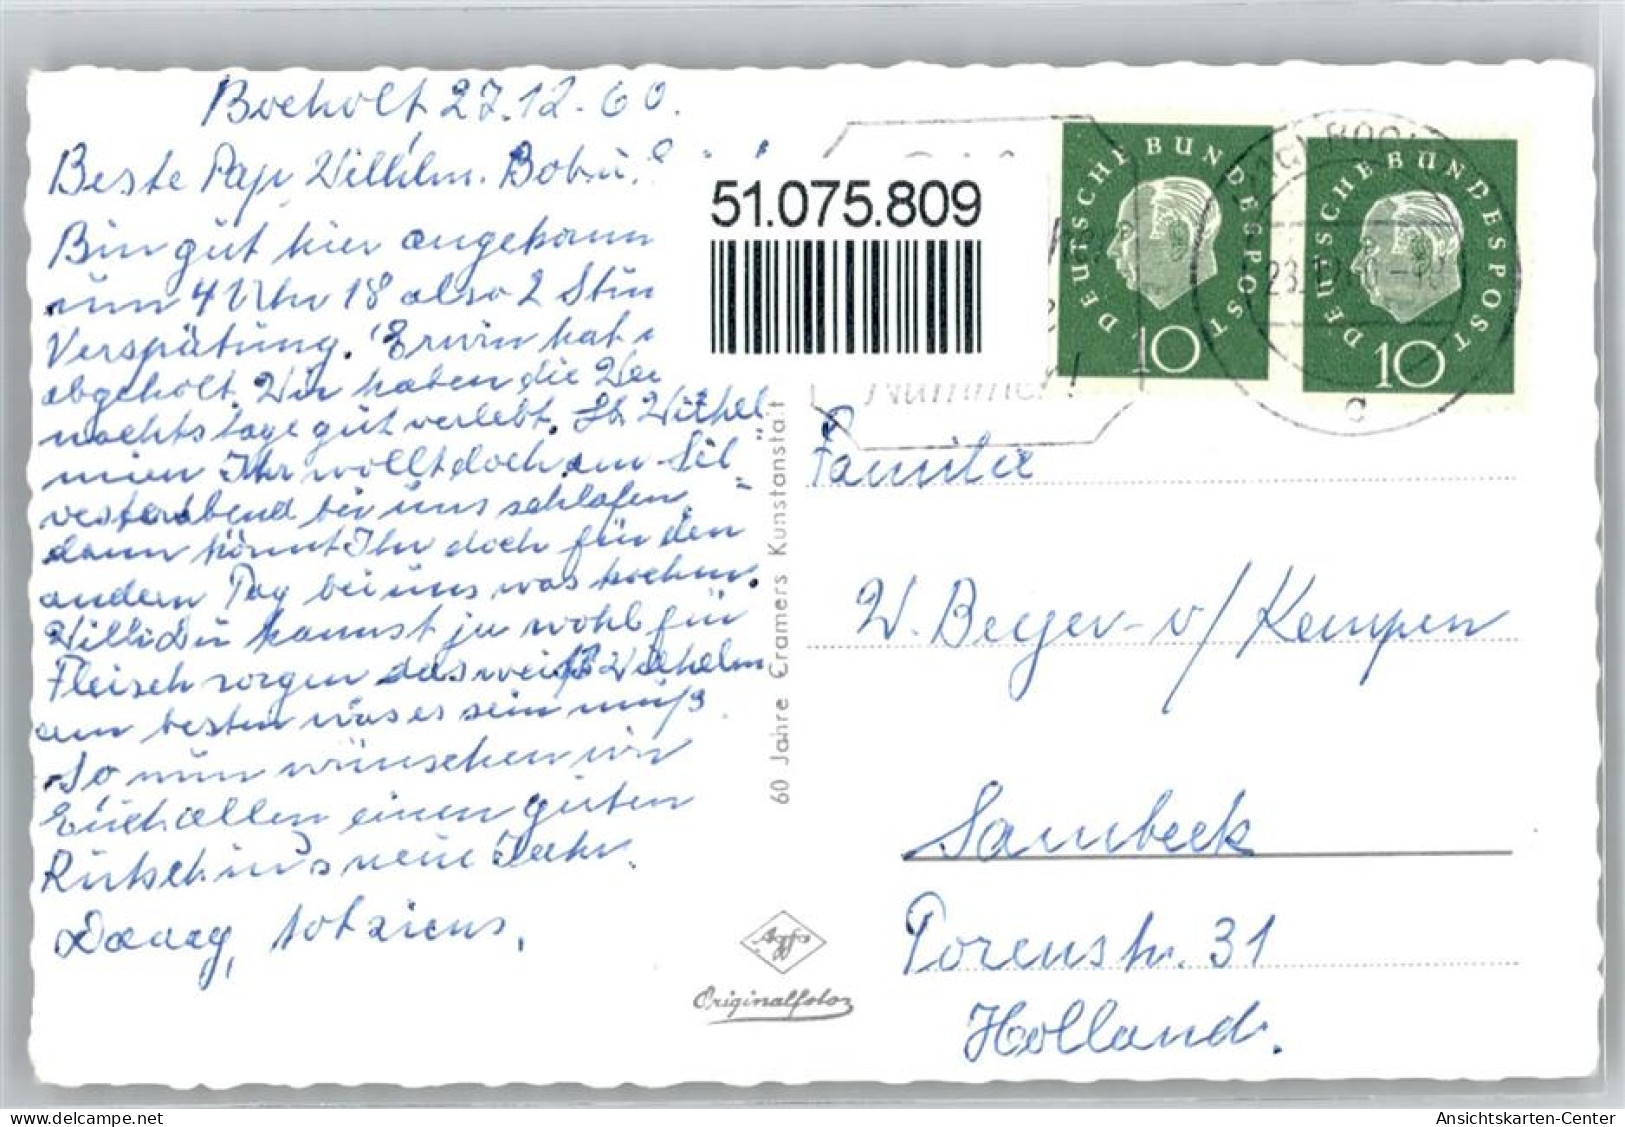 Bocholt 27.12.60.
Beste Papi Wilhelm.
Bin gut hier angekomm
um 4 Uhr 18 also 2 Stun
Verspätung. Erwin hat
abgeholt. Wir haben die Wei
nachtstage gut verlebt. Lb. Wilhel
mien Ihr wollt doch am Sil=
vesterabend bei uns schlafen,
dann könnt Ihr doch für den
andern Tag bei uns was kochen.
Willi Du kannst ja wohl für
Fleisch sorgen das weiß Wilhelm
am besten was es sein muß
So nun wünschen wir
Euch allen einen guten
Rutsch in's neue Jahr.
tot ziens,
51.075.809
DEUTSCHE BUNDESPOST
10
DEUTSCHE BUNDESPOST
10
c
60 Jahre Cramers Kunstanstalt
Familie
W. Beyer- v/ Kempen
Sambeck
Torenstr. 31
Holland.
Agfa
Originalfoto
delcampe.net
Ansichtskarten-Center